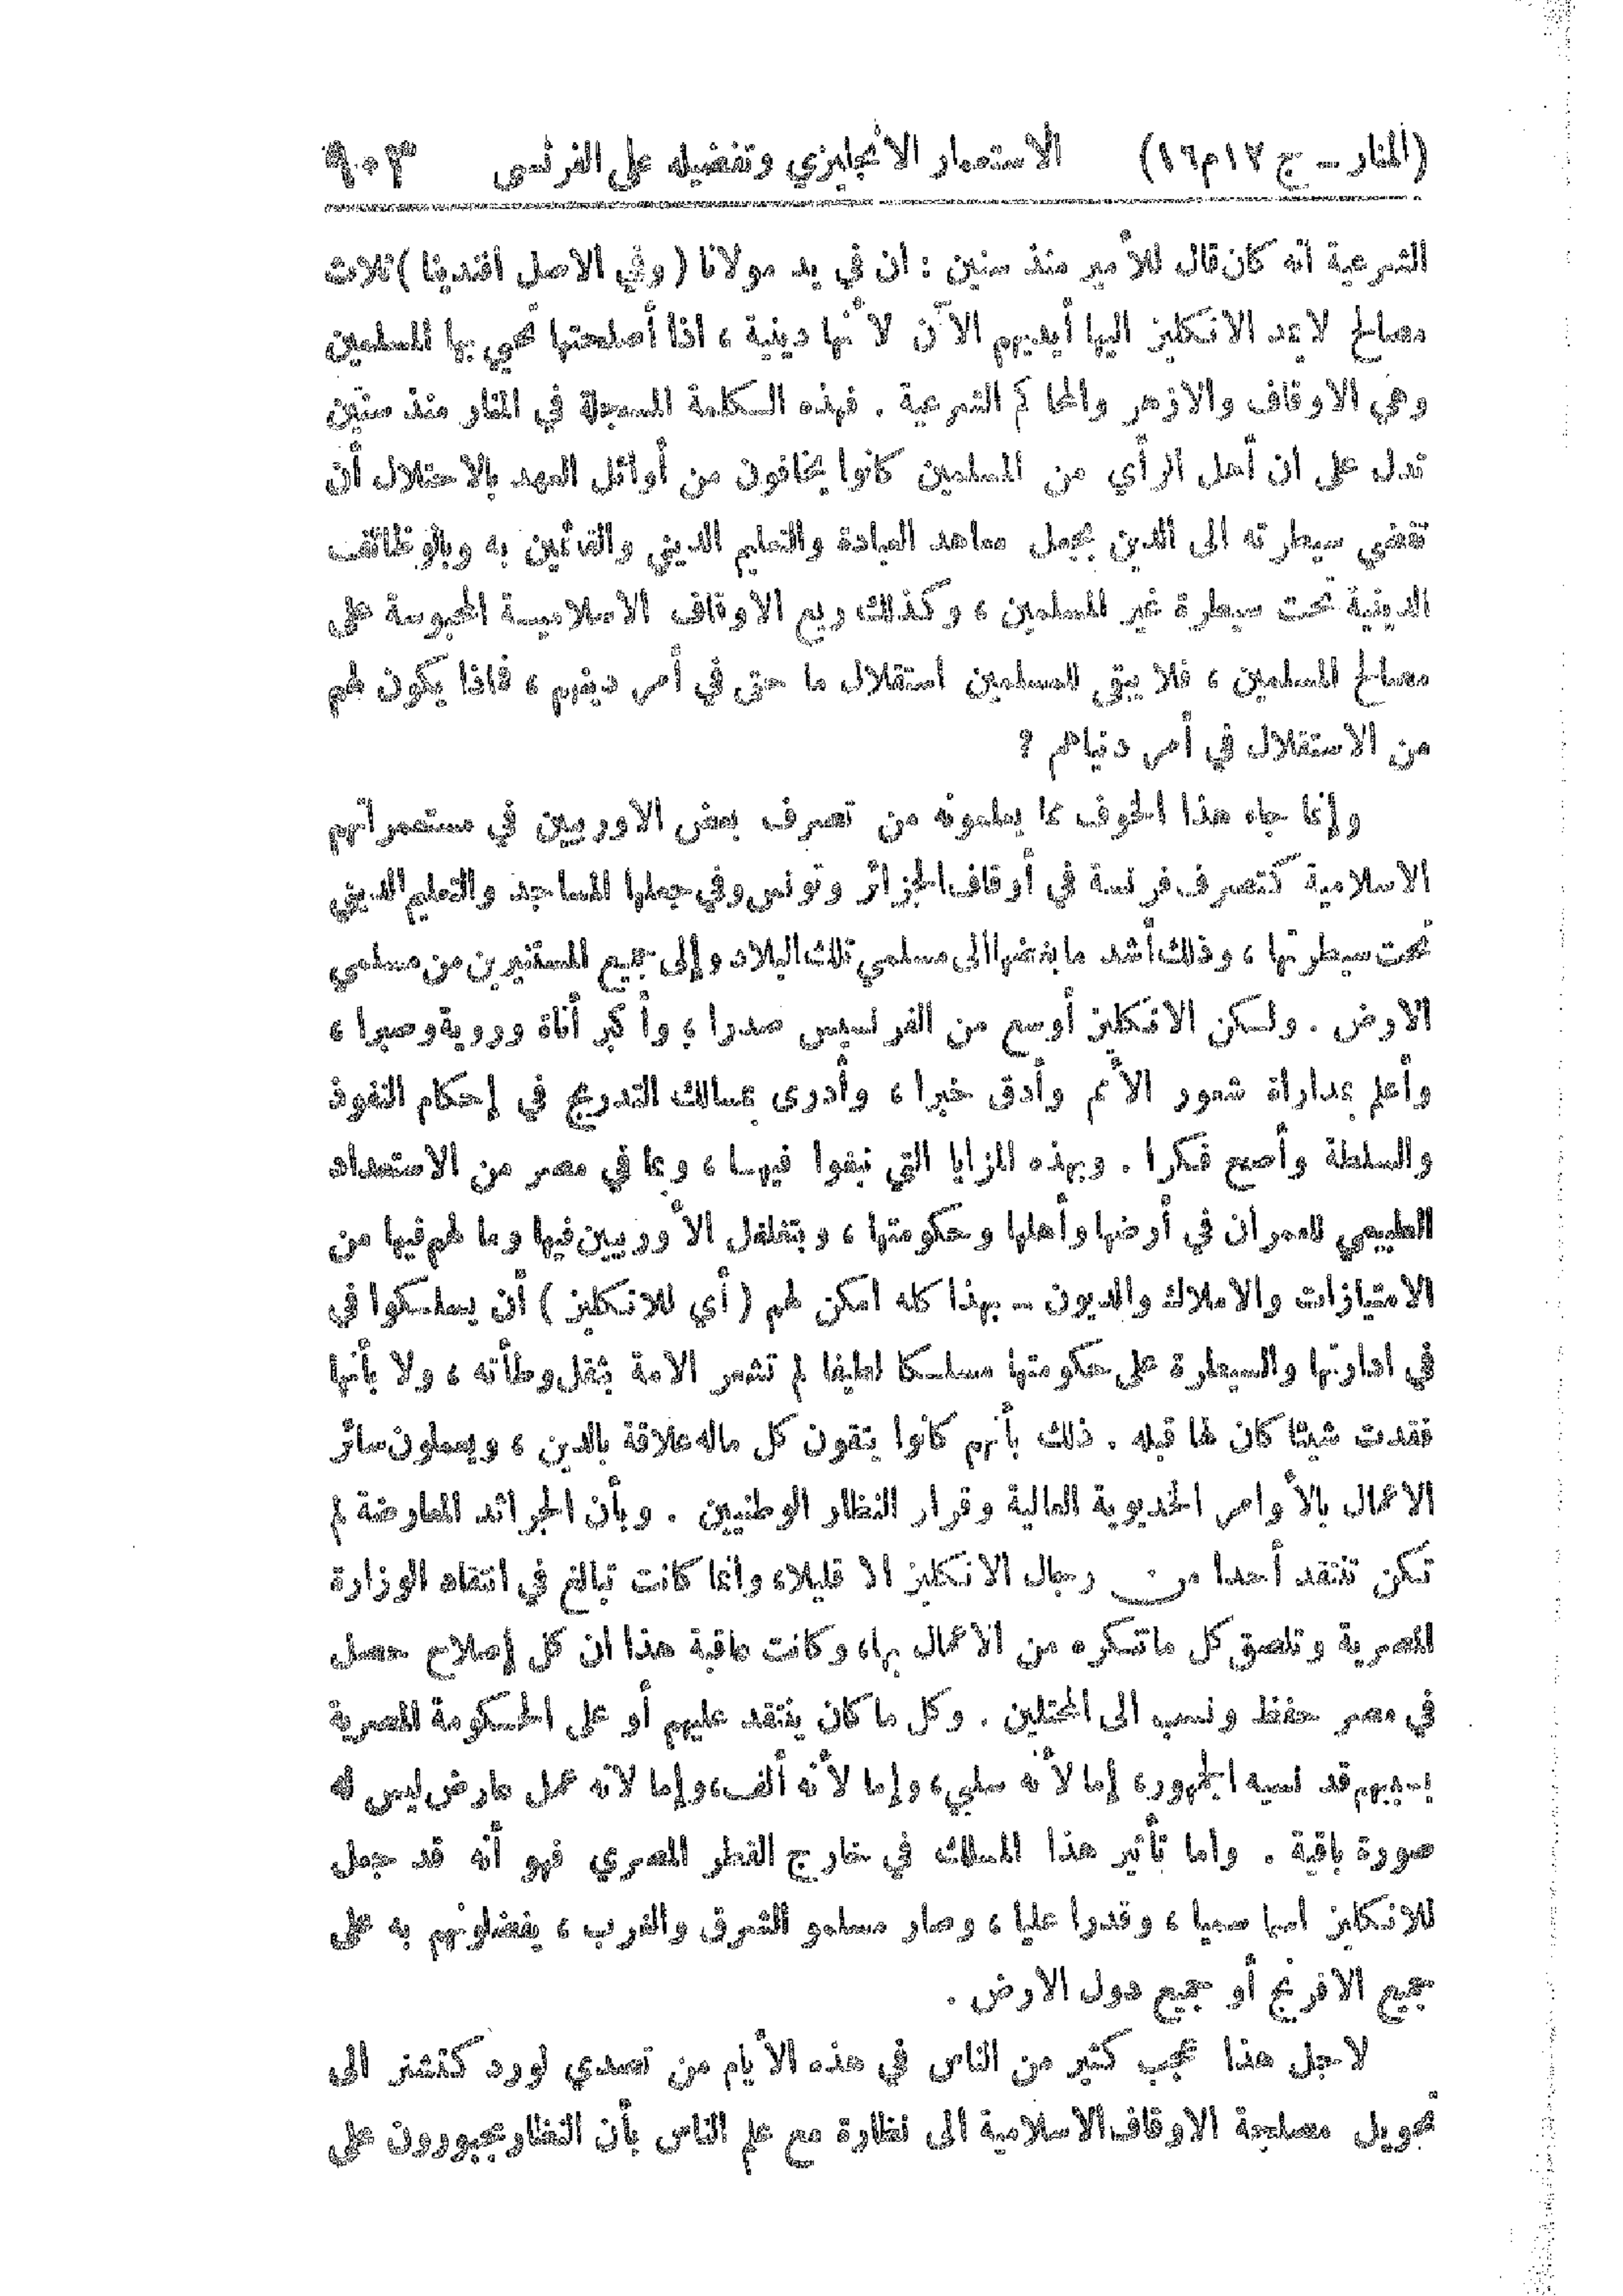 (المنار – ج ١٢ م ١٦) الاستعمار الانجليزي وتفضيله على الفرنسي ٩٠٣
الشرعية أنه كان قال للأمير منذ سنين : ان في يد مولانا ( وفي الاصل افندينا ) ثلاث
مصالح لا يمد الانكليز اليها أيديهم الآن لأنها دينية ، اذا أصلحتها تحي بها المسلمين
وهي الاوقاف والازهر والمحاكم الشرعية . فهذه الكلمة المسجلة في المنار منذ سنين
تدل على ان أهل الرأي من المسلمين كانوا يخافون من أوائل العهد بالاحتلال أن
تفضي سيطرته الى الدين بجعل معاهد العبادة والتعليم الديني والقائمين به وبالوظائف
الدينية تحت سيطرة غير المسلمين ، وكذلك ريع الاوقاف الاسلامية المحبوسة على
مصالح المسلمين ، فلا يبقى للمسلمين استقلال ما حتى في أمر دينهم ، فماذا يكون لهم
من الاستقلال في أمر دنياهم ؟
وإنما جاء هذا الخوف مما يعلمونه من تصرف بعض الاوربيين في مستعمراتهم
الاسلامية كتصرف فرنسة في أوقاف الجزائر وتونس وفي جعلها المساجد والتعليم الديني
تحت سيطرتها ، وذلك أشد ما بغضها الى مسلمي تلك البلاد وإلى جميع المستنيرين من مسلمي
الارض . ولكن الانكليز أوسع من الفرنسيس صدرا ، وأكبر أناة وروية وصبرا ،
وأعلم بمداراة شعور الأمم وأدق خبرا ، وأدرى بمسالك التدريج في إحكام النفوذ
والسلطة وأصح فكرا . وبهذه المزايا التي نبغوا فيها ، وبما في مصر من الاستعداد
الطبيعي للعمران في أرضها وأهلها وحكومتها ، وبتغلغل الأوربيين فيها وما لهم فيها من
الامتيازات والاملاك والديون – بهذا كله امكن لهم ( أي للانكليز ) أن يسلكوا في
في ادارتها والسيطرة على حكومتها مسلكا لطيفا لم تشعر الامة بثقل وطأته ، ولا بأنها
فقدت شيئا كان لها قبله . ذلك بأنهم كانوا يتقون كل ماله علاقة بالدين ، ويعملون سائر
الاعمال بالأوامر الخديوية العالية وقرار النظار الوطنيين . وبأن الجرائد المعارضة لم
تكن تنتقد أحدا من رجال الانكليز الا قليلا، وانما كانت تبالغ في انتقاد الوزارة
المصرية وتلصق كل ما تنكره من الاعمال بها، وكانت عاقبة هذا ان كل إصلاح حصل
في مصر حفظ ونسب الى المحتلين . وكل ما كان ينتقد عليهم أو على الحكومة المصرية
بسببهم قد نسيه الجمهور، إما لأنه سلبي، وإما لأنه ألف، وإما لانه عمل عارض ليس له
صورة باقية . واما تأثير هذا المسلك في خارج القطر المصري فهو أنه قد جعل
للانكليز اسما سميا ، وقدرا عليا ، وصار مسلمو الشرق والغرب ، يفضلونهم به على
جميع الافرنج أو جميع دول الارض .
لاجل هذا عجب كثير من الناس في هذه الأيام من تصدي لورد كتشنر الى
تحويل مصلحة الاوقاف الاسلامية الى نظارة مع علم الناس بأن النظار مجبورون على